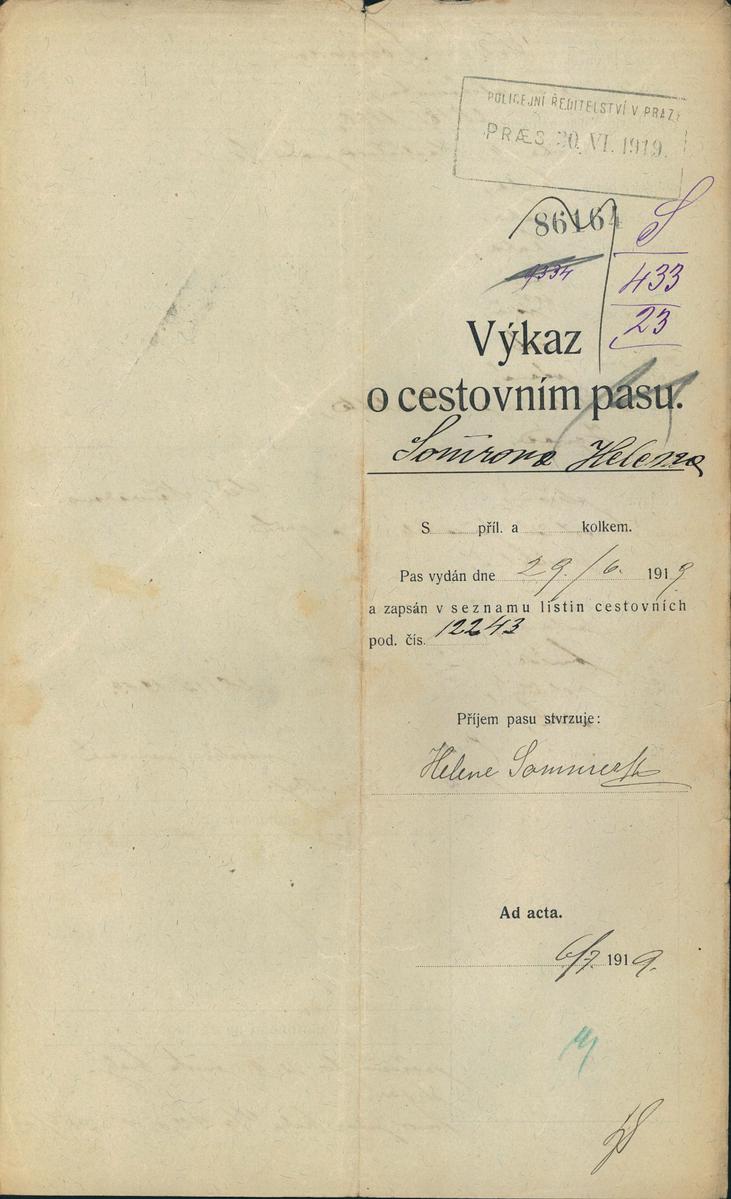 POLICEJNÍ ŘEDITELSTVÍ V PRAZE
PRÆS 30. VI. 1919.
86164
S
433
23
Výkaz
o cestovním pasu.
Helena
S příl. a kolkem.
Pas vydán dne 29./6. 1919
a zapsán v seznamu listin cestovních
pod. čís. 12243
Příjem pasu stvrzuje:
Helene
Ad acta.
6/7 1919.